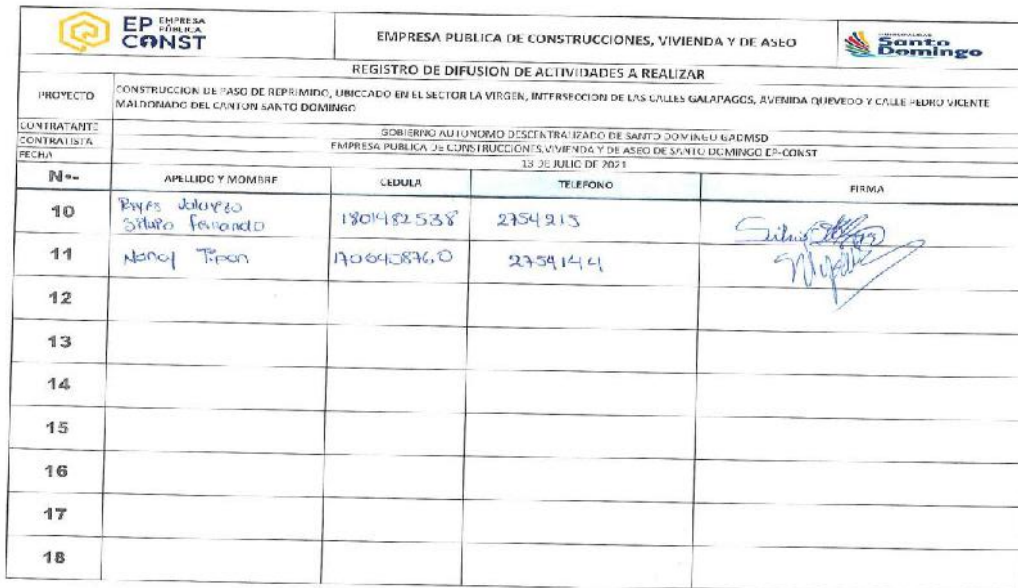 EP EMPRESA PÚBLICA CONST
EMPRESA PUBLICA DE CONSTRUCCIONES, VIVIENDA Y DE ASEO
Santo Domingo
REGISTRO DE DIFUSION DE ACTIVIDADES A REALIZAR
PROYECTO
CONSTRUCCION DE PASO DE REPRIMIDO, UBICCADO EN EL SECTOR LA VIRGEN, INTERSECCION DE LAS CALLES GALAPAGOS, AVENIDA QUEVEDO Y CALLE PEDRO VICENTE
MALDONADO DEL CANTON SANTO DOMINGO
CONTRATANTE GOBIERNO AUTONOMO DESCENTRALIZADO DE SANTO DOMINGO GADMSD
CONTRATISTA EMPRESA PUBLICA DE CONSTRUCCIONES,VIVIENDA Y DE ASEO DE SANTO DOMINGO EP-CONST
FECHA 13 DE JULIO DE 2021
N°- APELLIDO Y MOMBRE CEDULA TELEFONO FIRMA
10 Reyes
Fernando 1801482538 2754213
11 Nancy Tipan 2754144
12
13
14
15
16
17
18